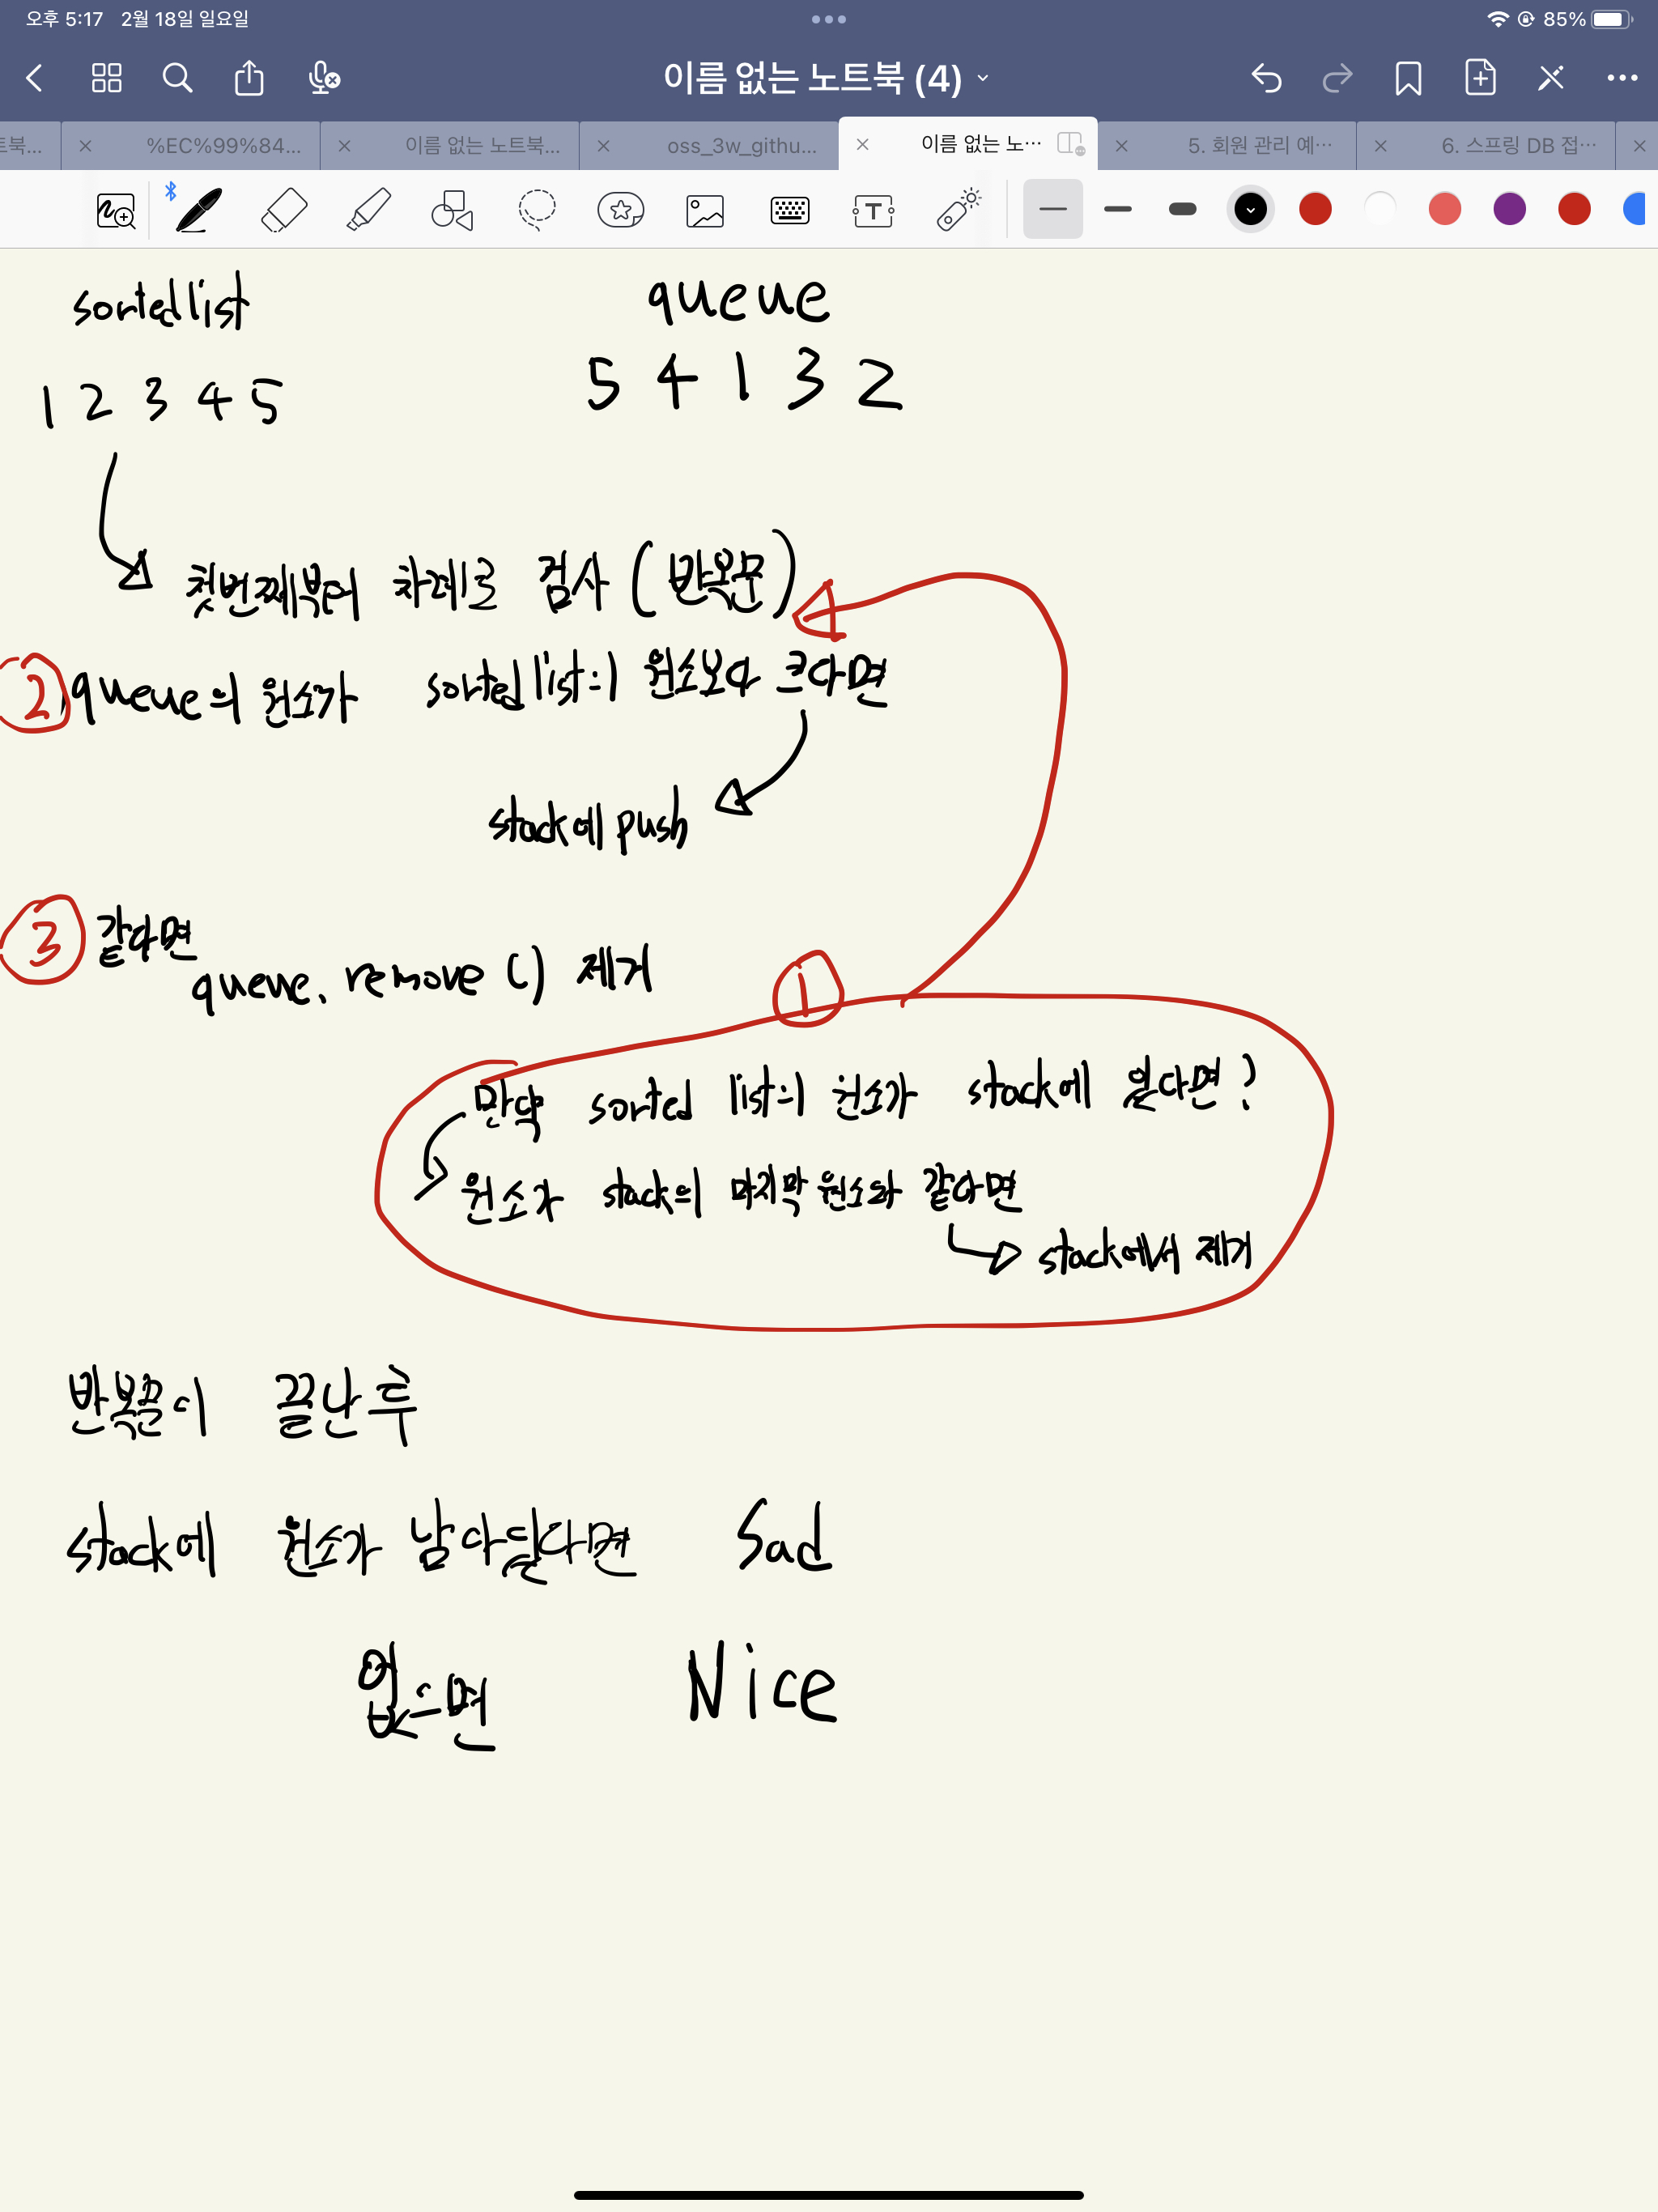 오후 5:17 2월 18일 일요일
85%
이름 없는 노트북 (4)
트북...
%EC%99%84...
이름 없는 노트북...
oss_3w_githu...
이름 없는 노...
5. 회원 관리 예...
6. 스프링 DB 접...
sorted list queue
1 2 3 4 5 5 4 1 3 2
첫번째부터 차례로 검사 (반복문)
② queue의 원소가 sorted list의 원소보다 크다면
stack에 push
③ 같다면
queue.remove () 제거
①
만약 sorted list의 원소가 stack에 있다면?
원소가 stack의 마지막 원소와 같다면
stack에서 제거
반복문이 끝난 후
stack에 원소가 남아있다면 Sad
없으면 Nice